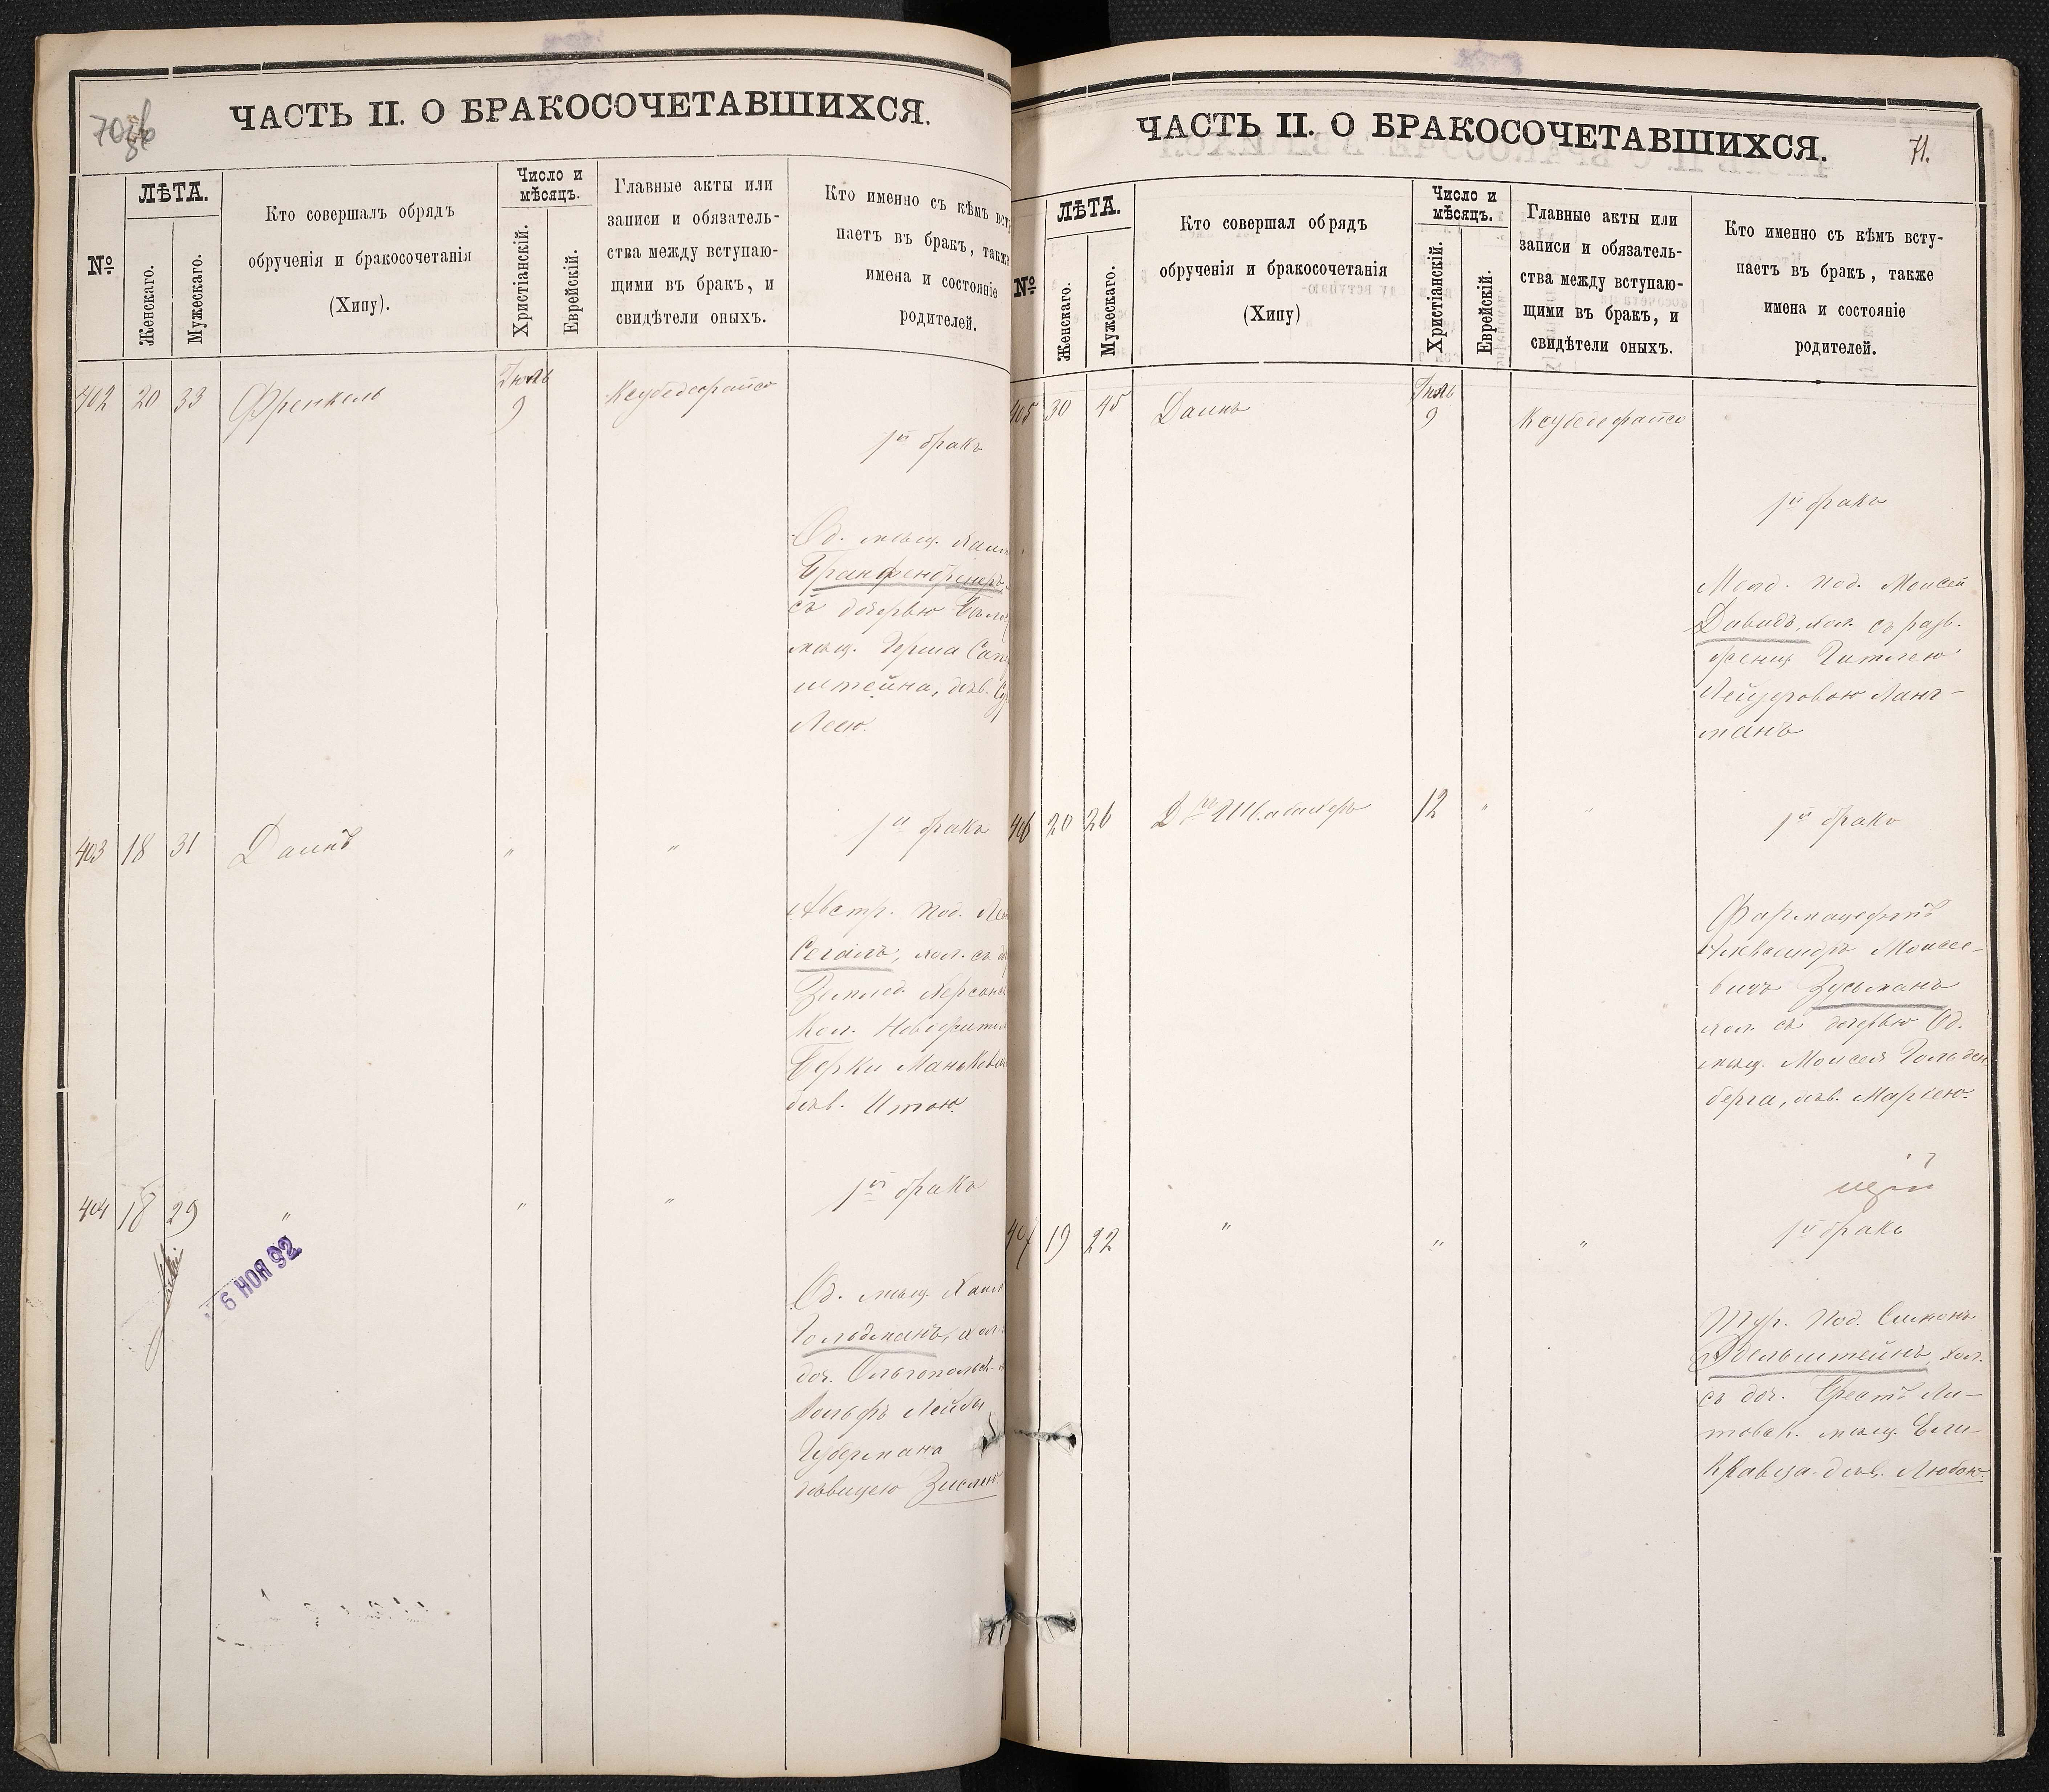 ЧАСТЬ II. О БРАКОСОЧЕТАВШИХСЯ.
№
ЛѢТА.
Женскаго.
Мужескаго.
Кто совершалъ обрядъ
обрученія и бракосочетанія
(Хипу).
Число и
мѣсяцъ.
Христіанскій.
Еврейскій.
Главные акты или
записи и обязатель-
ства между вступаю-
щими въ бракъ, и
свидѣтели оныхъ.
Кто именно съ кѣмъ всту
паетъ въ бракъ, также
имена и состояніе
родителей.
402 20 33 Френкель Іюль 9 Ксубедефрайсо
1й бракъ
Од. мѣщ.
съ дочерью
мѣщ. Герша
штейна, дѣв.
Леею.
403 18 31 Даинъ " "
1й бракъ
Австр. под.
Сегалъ, хол. съ
Землед. Херсонс
Кол. Новожитом
Берки Маньков
дѣв. Итою.
404 18 29 " " "
1й бракъ
6 НОЯ 92
Од. мѣщ. Хаим
Гольдманъ, хол.
доч. Ольгопольск.
Вольфъ Лейбы
Губермана
дѣвицею Зислею
ЧАСТЬ II. О БРАКОСОЧЕТАВШИХСЯ.
71.
№
ЛѢТА.
Женскаго.
Мужескаго.
Кто совершал обрядъ
обрученія и бракосочетанія
(Хипу)
Число и
мѣсяцъ.
Христіанскій.
Еврейскій.
Главные акты или
записи и обязатель-
ства между вступаю-
щими въ бракъ, и
свидѣтели оныхъ.
Кто именно съ кѣмъ всту-
паетъ въ бракъ, также
имена и состояніе
родителей.
405 30 45 Даинъ Іюль 9 Ксубедефрайсо
1й бракъ
Молд. под. Моисей
Давидъ, хол. съ разв.
женщ. Гитлею
Лейзеровою Ланг-
манъ
406 20 26 12 " "
1й бракъ
Фармацефтъ
Александръ Моисее-
вичъ Зусьманъ
хол. съ дочерью Од.
мѣщ. Моисея Гольден
берга, дѣв. Маріею.
407 19 22 " " "
1й бракъ
Тур. под. Симонъ
Эдельштейнъ, хол.
съ доч. Брестъ Ли-
товск. мѣщ. Ели
Кравца дѣв. Любою.